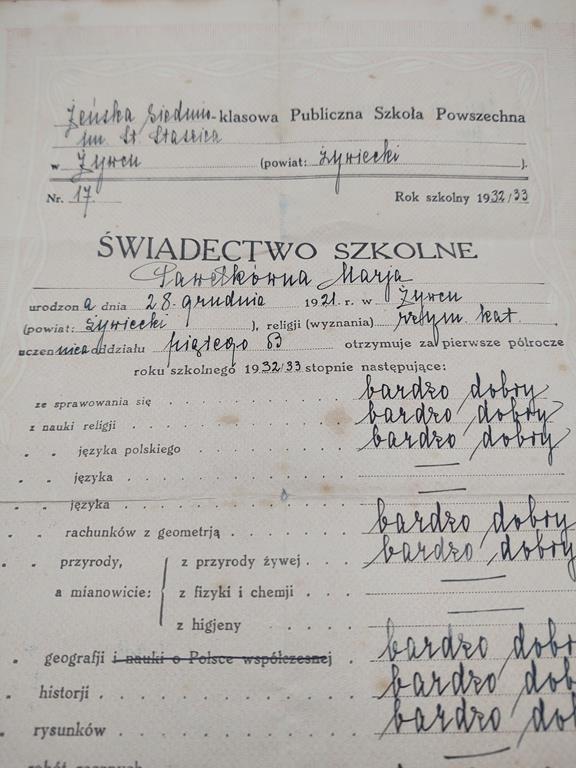 Żeńska siedmio-klasowa Publiczna Szkoła Powszechna
im. St. Staszica
w Żywcu (powiat: żywiecki ).
Nr. 17 Rok szkolny 1932/33
ŚWIADECTWO SZKOLNE
Pawełkówna Marja
urodzona dnia 28 grudnia 1921 r. w Żywcu
(powiat: żywiecki ), religji (wyznania) rzym. kat.
uczennica oddziału piątego B otrzymuje za pierwsze półrocze
roku szkolnego 1932/33 stopnie następujące:
ze sprawowania się bardzo dobry
z nauki religji bardzo dobry
" " języka polskiego bardzo dobry
" " języka —
" " języka —
" " rachunków z geometrją bardzo dobry
" " przyrody, z przyrody żywej bardzo dobry
a mianowicie: z fizyki i chemji —
z higjeny —
" geografji i nauki o Polsce współczesnej bardzo dobry
" historji bardzo dob
" rysunków bardzo dob
robót ręcznych —